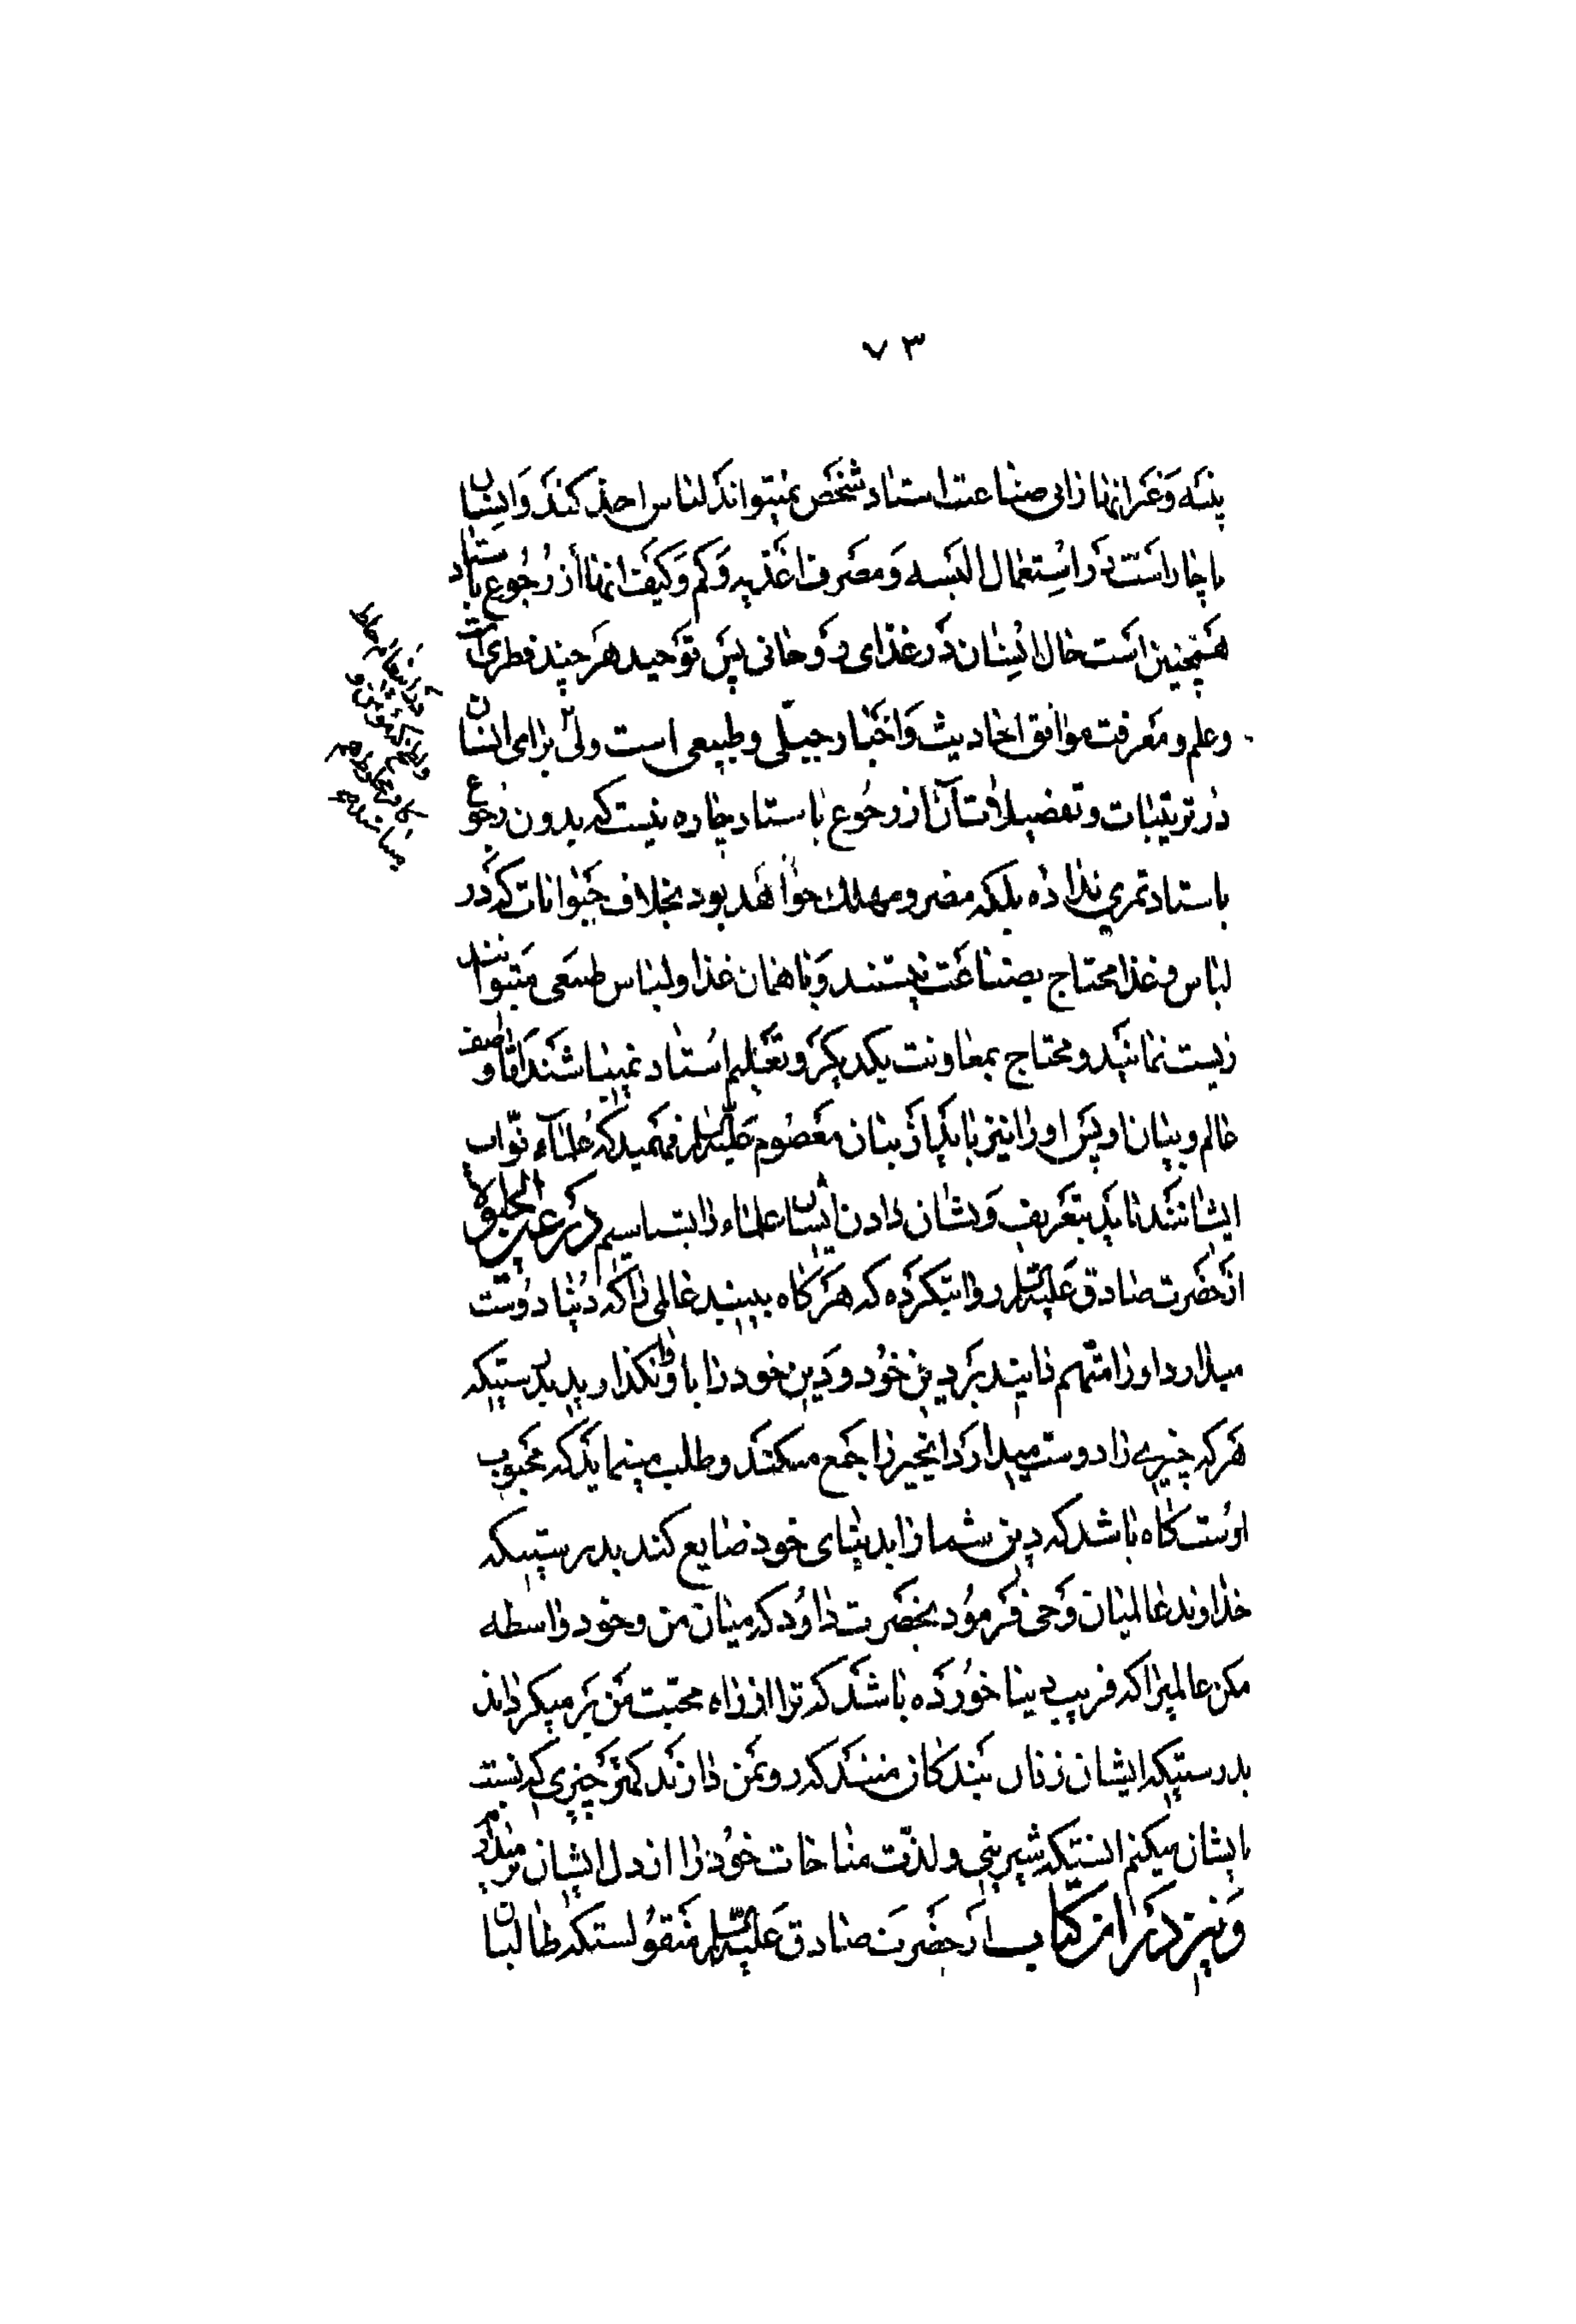 ۷۳
پنبه و غیر اینها را بی صناعت استاد شخص نمیتواند لباس اخذ کند و انسان
ناچار است در استعمال البسه و مصرف اغذیه و کم و کیف انها از رجوع باستاد
همچنین است حال انسان در غذای روحانی پس توحید هر چند فطری است
و علم و معرفت موافق احادیث و اخبار جبلّی و طبیعی است ولی برای انسان
در ترتیبات و تفضیلات آن از رجوع باستاد چاره نیست که بدون رجوع
باستاد ثمری نداده بلکه مضر و مهلك خواهد بود بخلاف حیوانات که در
لباس و غذا محتاج بصناعت نیستند و با همان غذا و لباس طبیعی میتوانند
زیست نمایند و محتاج بمعاونت یکدیگر و تعلیم استاد نمیباشند اما وصف
عالم و بیان او پس او را نیز باید از بیان معصوم علیه السلام فهمید که علمآء نوّاب
ایشانند باید بتعریف و نشان دادن ایشان علماء را بشناسیم در عین الحیوة
از حضرت صادق علیه السلام روایتکرده که هر گاه ببینید عالمی را که دنیا دوست
میدارد او را متّهم دانید بر دین خود و دین خود را باو نگذارید بدرستیکه
هر که چیزی را دوست میدارد انچیز را جمع میکند و طلب مینماید که محبوب
اوست گاه باشد که دین شما را بدنیای خود ضایع کند بدرستیکه
خداوند عالمیان وحی فرمود بحضرت داود که میان من و خود واسطه
مکن عالمیرا که فریب دنیا خورده باشد که ترا از راه محبّت من بر میگرداند
بدرستیکه ایشان زنان بندگان منند که رو بمن دارند کمتر چیزی که نسبت
بایشان میکنم انستکه شیرینی و لذّت مناجات خود را از دل ایشان بر میدارم
و نیز در ان کتاب از حضرت صادق علیه السلام منقولستکه طالبان